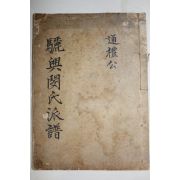 道禮公
驪興閔氏派譜